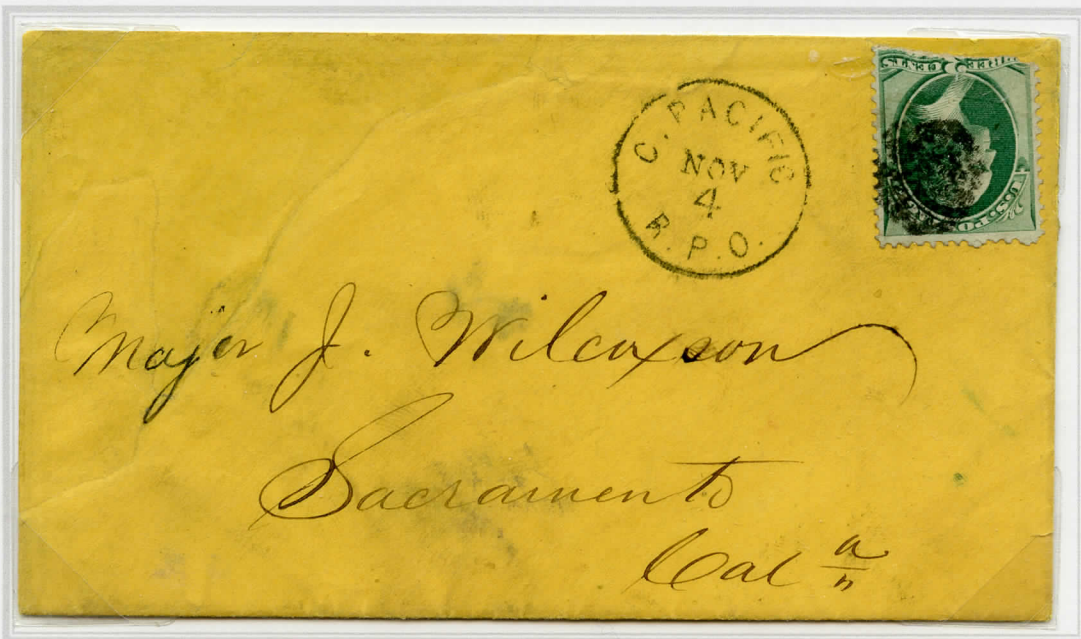 C. PACIFIC
NOV
4
R.P.O.
Major J. Wilcoxson
Sacramento
Cal a